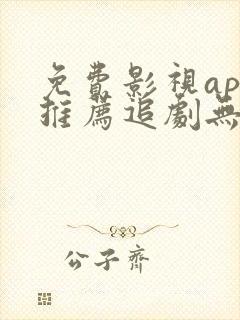 免費影視ap
推薦追劇無
公子齊